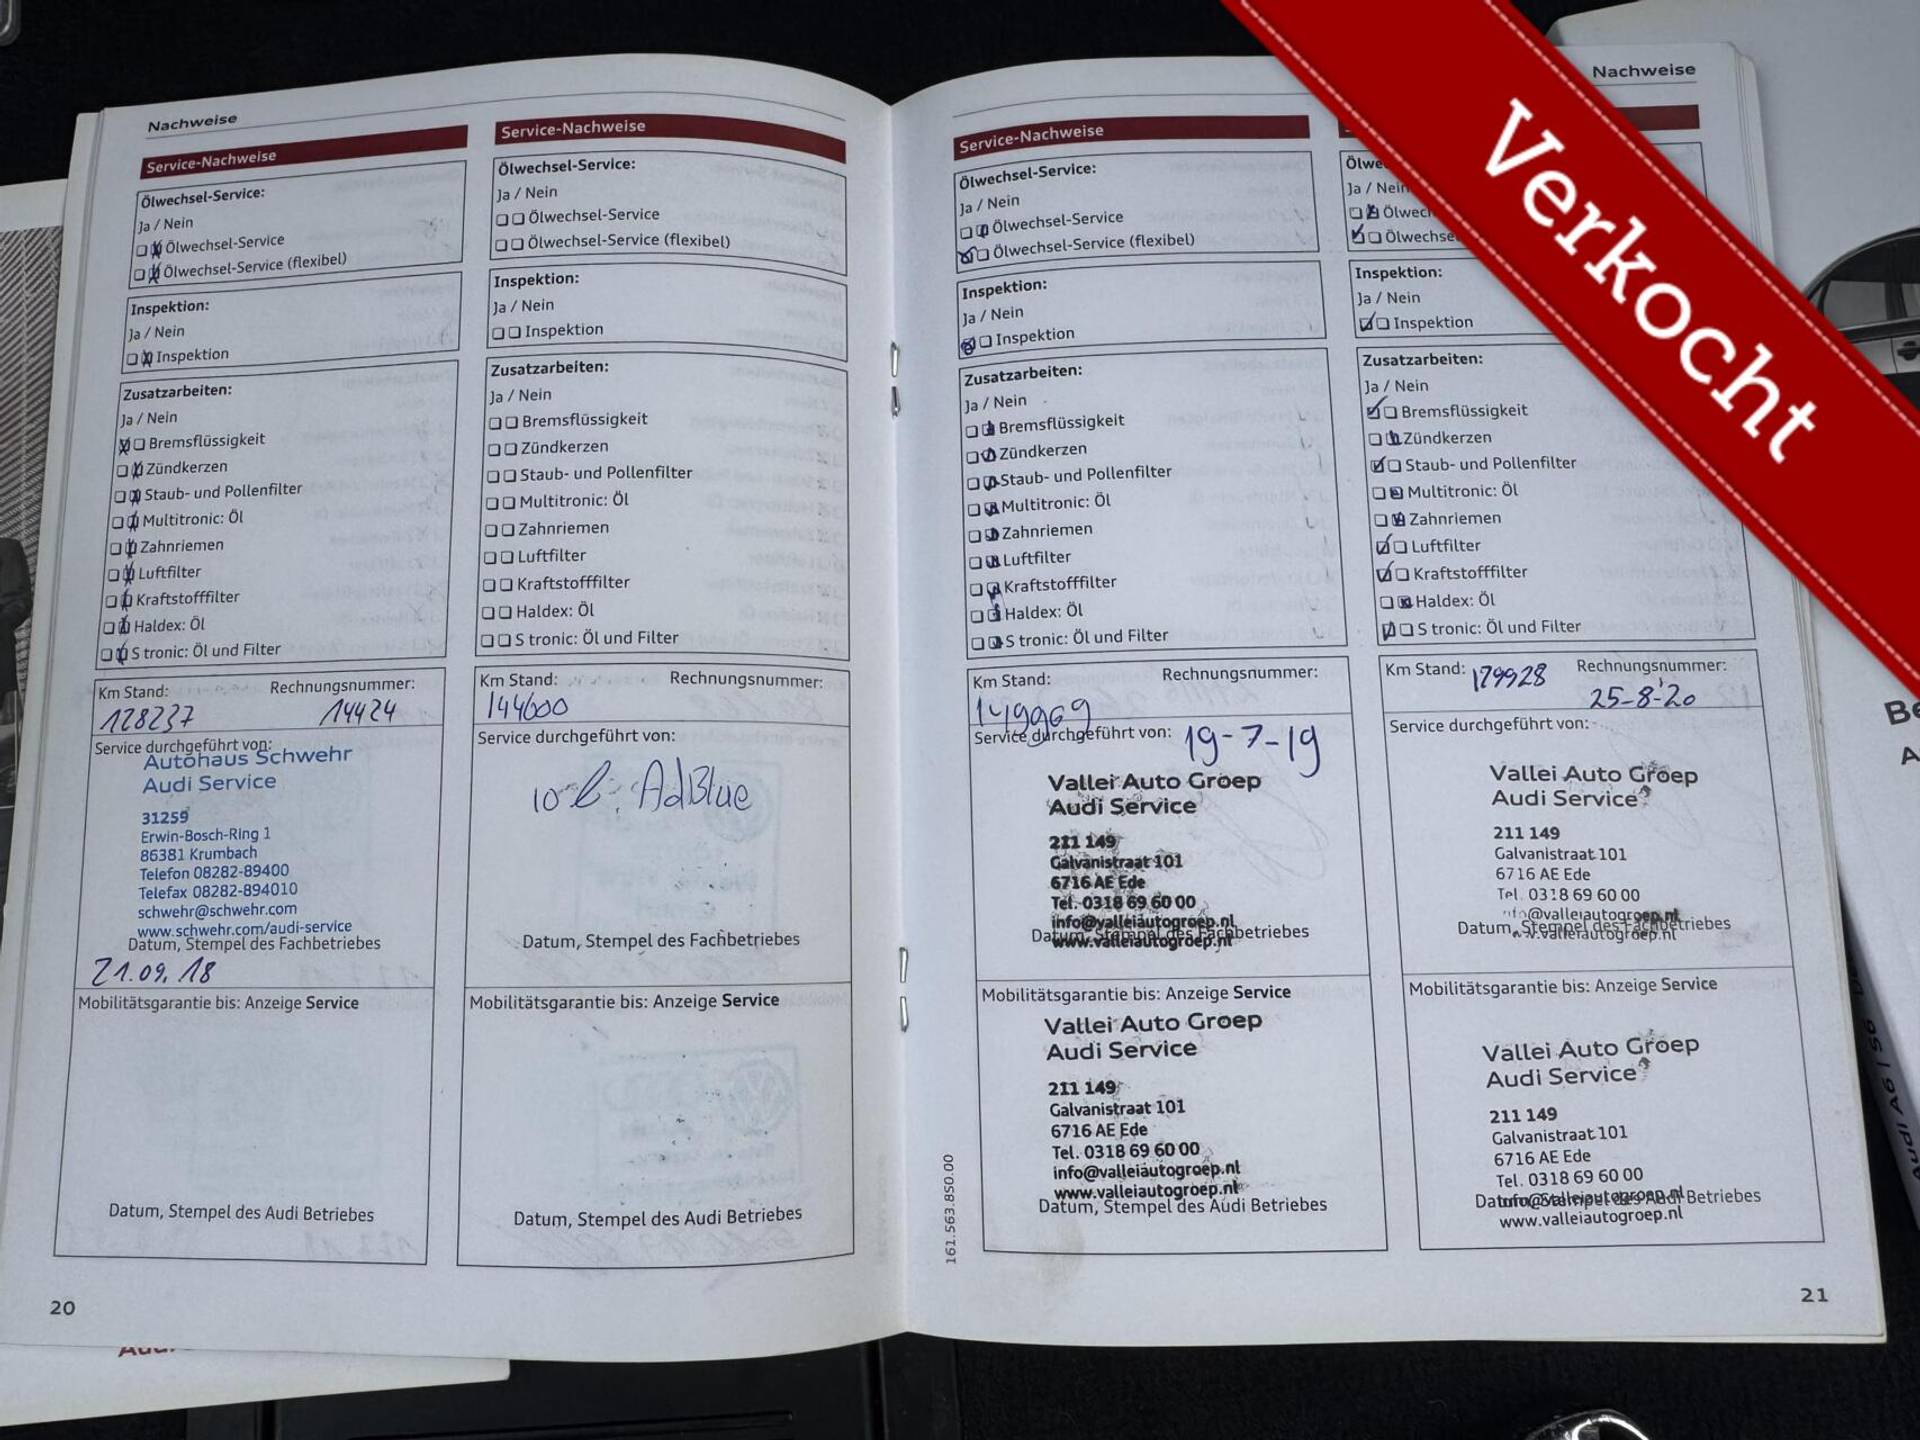 Nachweise
Service-Nachweise
Ölwechsel-Service:
Ja / Nein
Ölwechsel-Service
Ölwechsel-Service (flexibel)
Inspektion:
Ja / Nein
Inspektion
Zusatzarbeiten:
Ja / Nein
Bremsflüssigkeit
Zündkerzen
Staub- und Pollenfilter
Multitronic: Öl
Zahnriemen
Luftfilter
Kraftstofffilter
Haldex: Öl
S tronic: Öl und Filter
Km Stand: Rechnungsnummer:
128237 14424
Service durchgeführt von:
Autohaus Schwehr
Audi Service
31259
Erwin-Bosch-Ring 1
86381 Krumbach
Telefon 08282-89400
Telefax 08282-894010
schwehr@schwehr.com
www.schwehr.com/audi-service
Datum, Stempel des Fachbetriebes
21.09.18
Mobilitätsgarantie bis: Anzeige Service
Datum, Stempel des Audi Betriebes
20
Service-Nachweise
Ölwechsel-Service:
Ja / Nein
Ölwechsel-Service
Ölwechsel-Service (flexibel)
Inspektion:
Ja / Nein
Inspektion
Zusatzarbeiten:
Ja / Nein
Bremsflüssigkeit
Zündkerzen
Staub- und Pollenfilter
Multitronic: Öl
Zahnriemen
Luftfilter
Kraftstofffilter
Haldex: Öl
S tronic: Öl und Filter
Km Stand: Rechnungsnummer:
144600
Service durchgeführt von:
10 l. AdBlue
Datum, Stempel des Fachbetriebes
Mobilitätsgarantie bis: Anzeige Service
Datum, Stempel des Audi Betriebes
Service-Nachweise
Ölwechsel-Service:
Ja / Nein
Ölwechsel-Service
Ölwechsel-Service (flexibel)
Inspektion:
Ja / Nein
Inspektion
Zusatzarbeiten:
Ja / Nein
Bremsflüssigkeit
Zündkerzen
Staub- und Pollenfilter
Multitronic: Öl
Zahnriemen
Luftfilter
Kraftstofffilter
Haldex: Öl
S tronic: Öl und Filter
Km Stand: Rechnungsnummer:
149969
Service durchgeführt von: 19-7-19
Vallei Auto Groep
Audi Service
211 149
Galvanistraat 101
6716 AE Ede
Tel. 0318 69 60 00
info@valleiautogroep.nl
Datum, Stempel des Fachbetriebes
www.valleiautogroep.nl
Mobilitätsgarantie bis: Anzeige Service
Vallei Auto Groep
Audi Service
211 149
Galvanistraat 101
6716 AE Ede
Tel. 0318 69 60 00
info@valleiautogroep.nl
www.valleiautogroep.nl
Datum, Stempel des Audi Betriebes
161.563.850.00
Nachweise
Ölwe
Ja / Nein
Ölwec
Ölwechse
Inspektion:
Ja / Nein
Inspektion
Zusatzarbeiten:
Ja / Nein
Bremsflüssigkeit
Zündkerzen
Staub- und Pollenfilter
Multitronic: Öl
Zahnriemen
Luftfilter
Kraftstofffilter
Haldex: Öl
S tronic: Öl und Filter
Km Stand: 179928 Rechnungsnummer:
25-8-20
Service durchgeführt von:
Vallei Auto Groep
Audi Service
211 149
Galvanistraat 101
6716 AE Ede
Tel. 0318 69 60 00
@valleiautogroep.nl
Datum, Stempel des Fachbetriebes
valleiautogroep.nl
Mobilitätsgarantie bis: Anzeige Service
Vallei Auto Groep
Audi Service
211 149
Galvanistraat 101
6716 AE Ede
Tel. 0318 69 60 00
info@valleiautogroep.nl
Datum, Stempel des Audi Betriebes
www.valleiautogroep.nl
21
Verkocht
Be
A
Audi A6 | S6